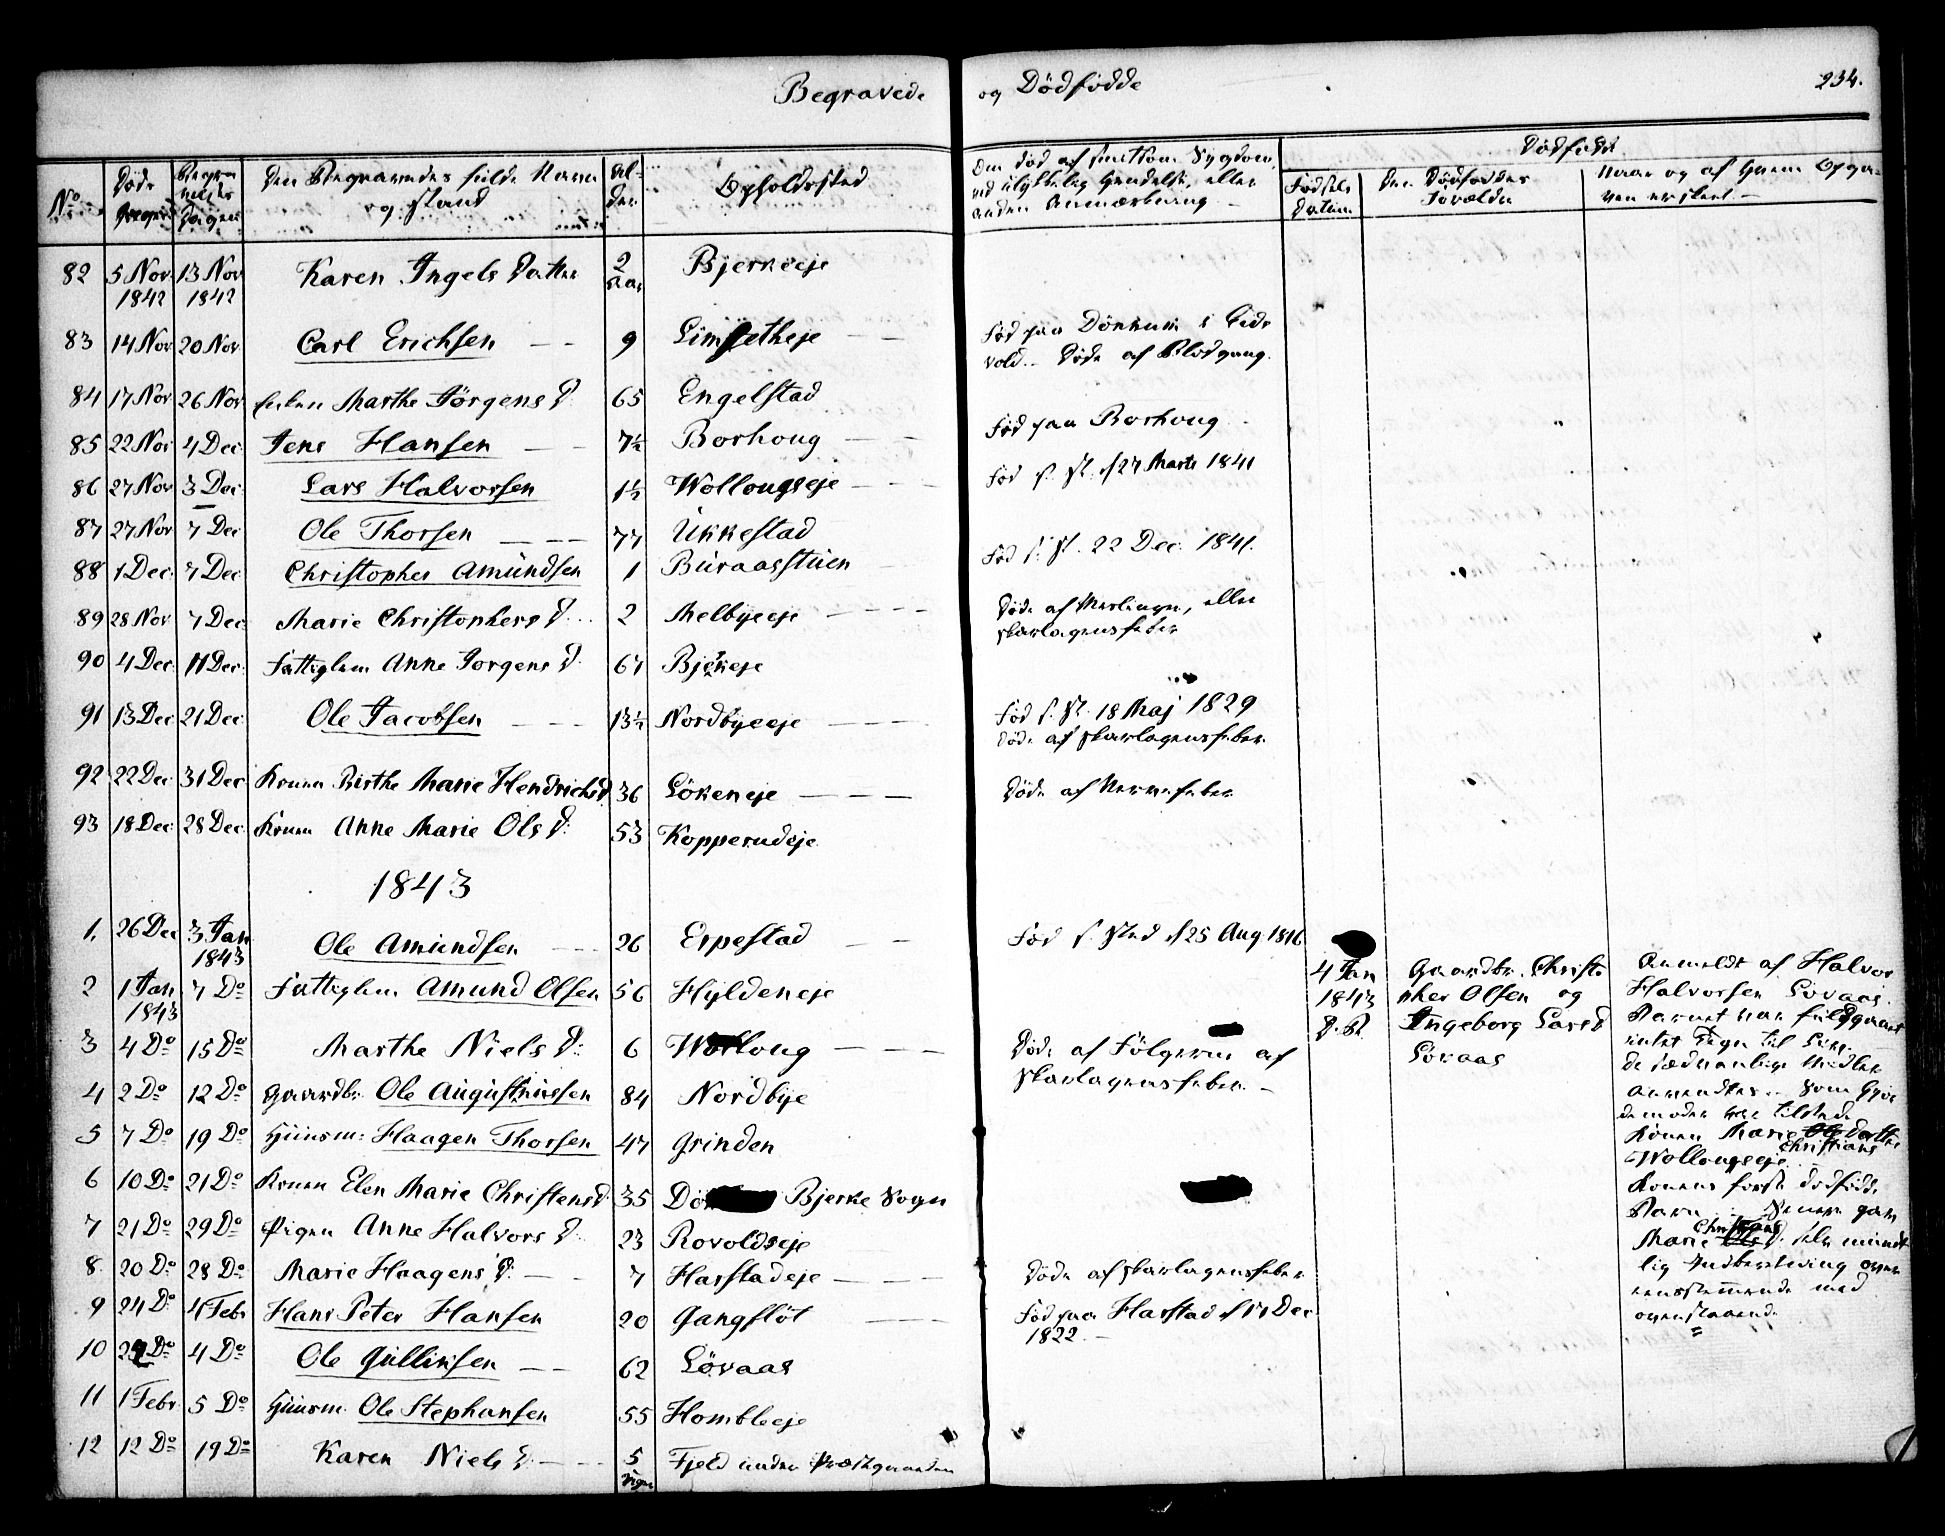 Begravede og Dödfödde 234.
No Döds Dagen Begravelses Dagen Den Begravedes fulde Navn og Stand Alder Opholdssted
Om död af smitsom Sygdom, ved ulykkelig Hendelse, eller anden Anmærkning Dödfödte
Födsels Datum Den Dödföddes Forældre Naar og af hvem Opgaven er skeet
82 5 Nov 1842 13 Nov 1842 Karen Ingels Datter 2 Aar Bjerkeeje
83 14 Nov 20 Nov Carl Erichsen 9 Limsetheje Föd paa Dönnum i Eidsvold. Döde af Blodgang.
84 17 Nov 26 Nov Enken Marthe Jörgens D. 65 Engelstad
85 22 Nov 4 Dec Jens Hansen 7½ Borhoug Föd paa Borhoug
86 27 Nov 3 Dec Lars Halvorsen 1½ Wollougseje Föd s. St. d 27 Marts 1841
87 27 Nov 7 Dec Ole Thorsen 77 Ukkestad
88 1 Dec. 7 Dec Christopher Amundsen 1 Buraasstuen Föd s. St. 22 Dec. 1841.
89 28 Nov 7 Dec Marie Christophers D. 2 Melbyeeje Döde af Meslinger, eller Skarlagensfeber
90 4 Dec. 11 Dec. Fattiglem Anne Jorgens D. 67 Bjerkeje
91 13 Dec 21 Dec Ole Jacobsen 13½ Nordbyeeje Föd s. St. 18 Maj 1829 döde af Skarlagensfeber
92 22 Dec 31 Dec Konen Birthe Marie Hendrichs D 36 Lökeneje Döde af Nervefeber
93 18 Dec 28 Dec Konen Anne Marie Ols D: 53 Kopperudeje
1843
1. 26 Dec 3 Jan 1843 Ole Amundsen 26 Erpestad Föd s. Sted d 25 Aug 1816
2 1 Jan 1843 7 Do Fattiglem Amund Olsen 56 Hyldeneje
3 4 Do 15 Do Marthe Niels D: 6 Wolloug Döde af Fölgerne af Skarlagensfeber
4 2 Do 12 Do Gaardbr. Ole Augustinussen 84 Nordbye
5 7 Do 19 Do Huusm: Haagen Thorsen 47 Grinden
6 10 Do 21 Do Konen Elen Marie Christens D 35 Bjerke Sogn
7 21 Do 29 Do Pigen Anne Halvors D. 23 Rovoldseje
8. 20 Do 28 Do Marie Haagens D. 7 Harstadeje Döde af Skarlagensfeber
9 24 Do 4 Febr Hans Peter Hansen 20 Gangflöt Föd paa Harstad d 17 Dec 1822.
10 Do 4 Do Ole Gulliksen 62 Lövaas
11 1 Febr. 5 Do Huusm. Ole Stephansen 55 Hombleeje
12 12 Do 19 Do Karen Niels D. 5 Uger Fjeld under Præstegaarden
4 Jan 1843 Gaardbr. Christopher Olsen og Ingeborg Lars D Lövaas
Anmeldt af Halvor
Halvorsen Lövaas.
Barnet var fuldbaaret
intet Tegn til Liv.
de sædvanlige Midler
anvendtes. Som Gjordemoder var tilstede
Konen Marie Christians Datter
Wollougseje.
Konens förste dödfödde
Barn. Senere gav
Marie Christians D. selv mundtlig Indberetning overeensstemmende med
ovenstaaende